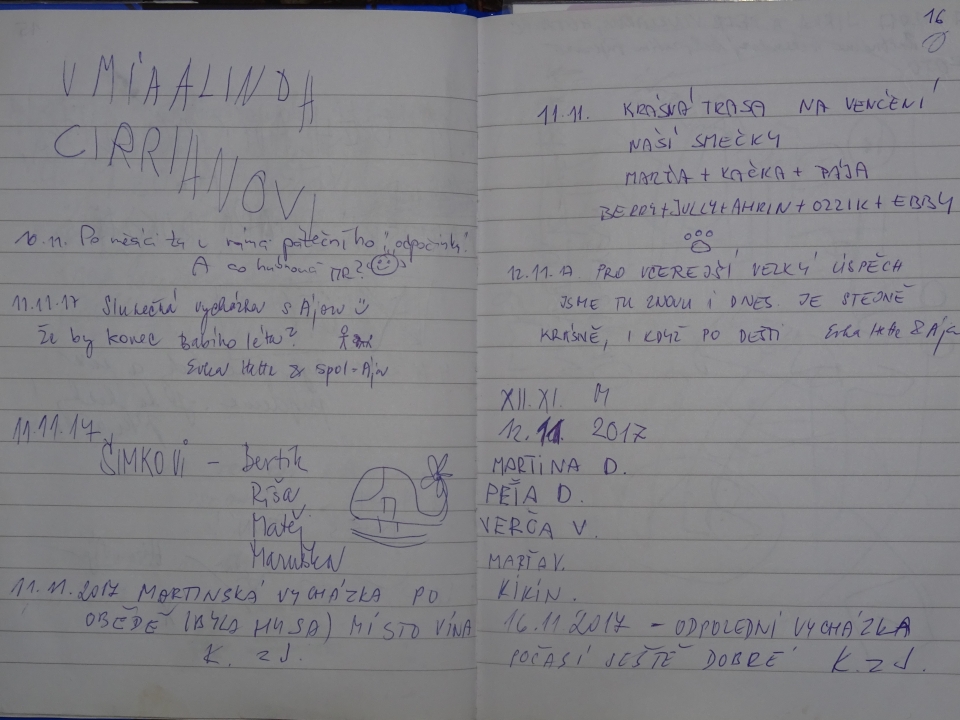 CIRRIANOVI
10.11. Po měsíci tu v rámci pátečního "odpočinku".
A co
11.11.17 Slunečná vycházka s Ájou
Že by konec Babího léta?
& spol = Ája
11.11.17.
ŠIMKOVI - Bertík
Ríša
Matěj
Maruška
11.11.2017 MARTINSKÁ VYCHÁZKA PO
OBĚDĚ (BYLA HUSA) MÍSTO VÍNA
K. z J.
16
11.11. KRÁSNÁ TRASA NA VENČENÍ
NAŠÍ SMEČKY
MARŤA + KAČKA + PÁJA
BERRY + JULLY + AHRIN + OZZIK + EBBY
12.11.17 PRO VČEREJŠÍ VELKÝ ÚSPĚCH
JSME TU ZNOVU I DNES. JE STEJNĚ
KRÁSNĚ, I KDYŽ PO DEŠTI & Ája
XII. XI. M
12. 11. 2017
MARTINA D.
PEŤA D.
VERČA V.
MARŤA V.
KIKIN.
16.11.2017 - ODPOLEDNÍ VYCHÁZKA
POČASÍ JEŠTĚ DOBRÉ K. z J.